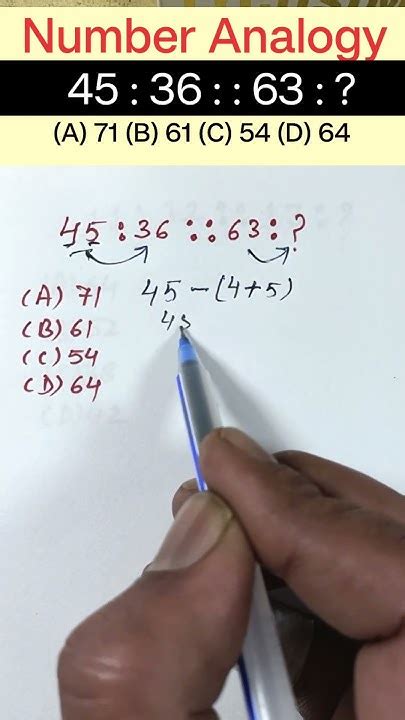 Number Analogy
45 : 36 : : 63 : ?
(A) 71 (B) 61 (C) 54 (D) 64
45 : 36 :: 63 : ?
(A) 71
45 - (4+5)
(B) 61
45
(C) 54
(D) 64